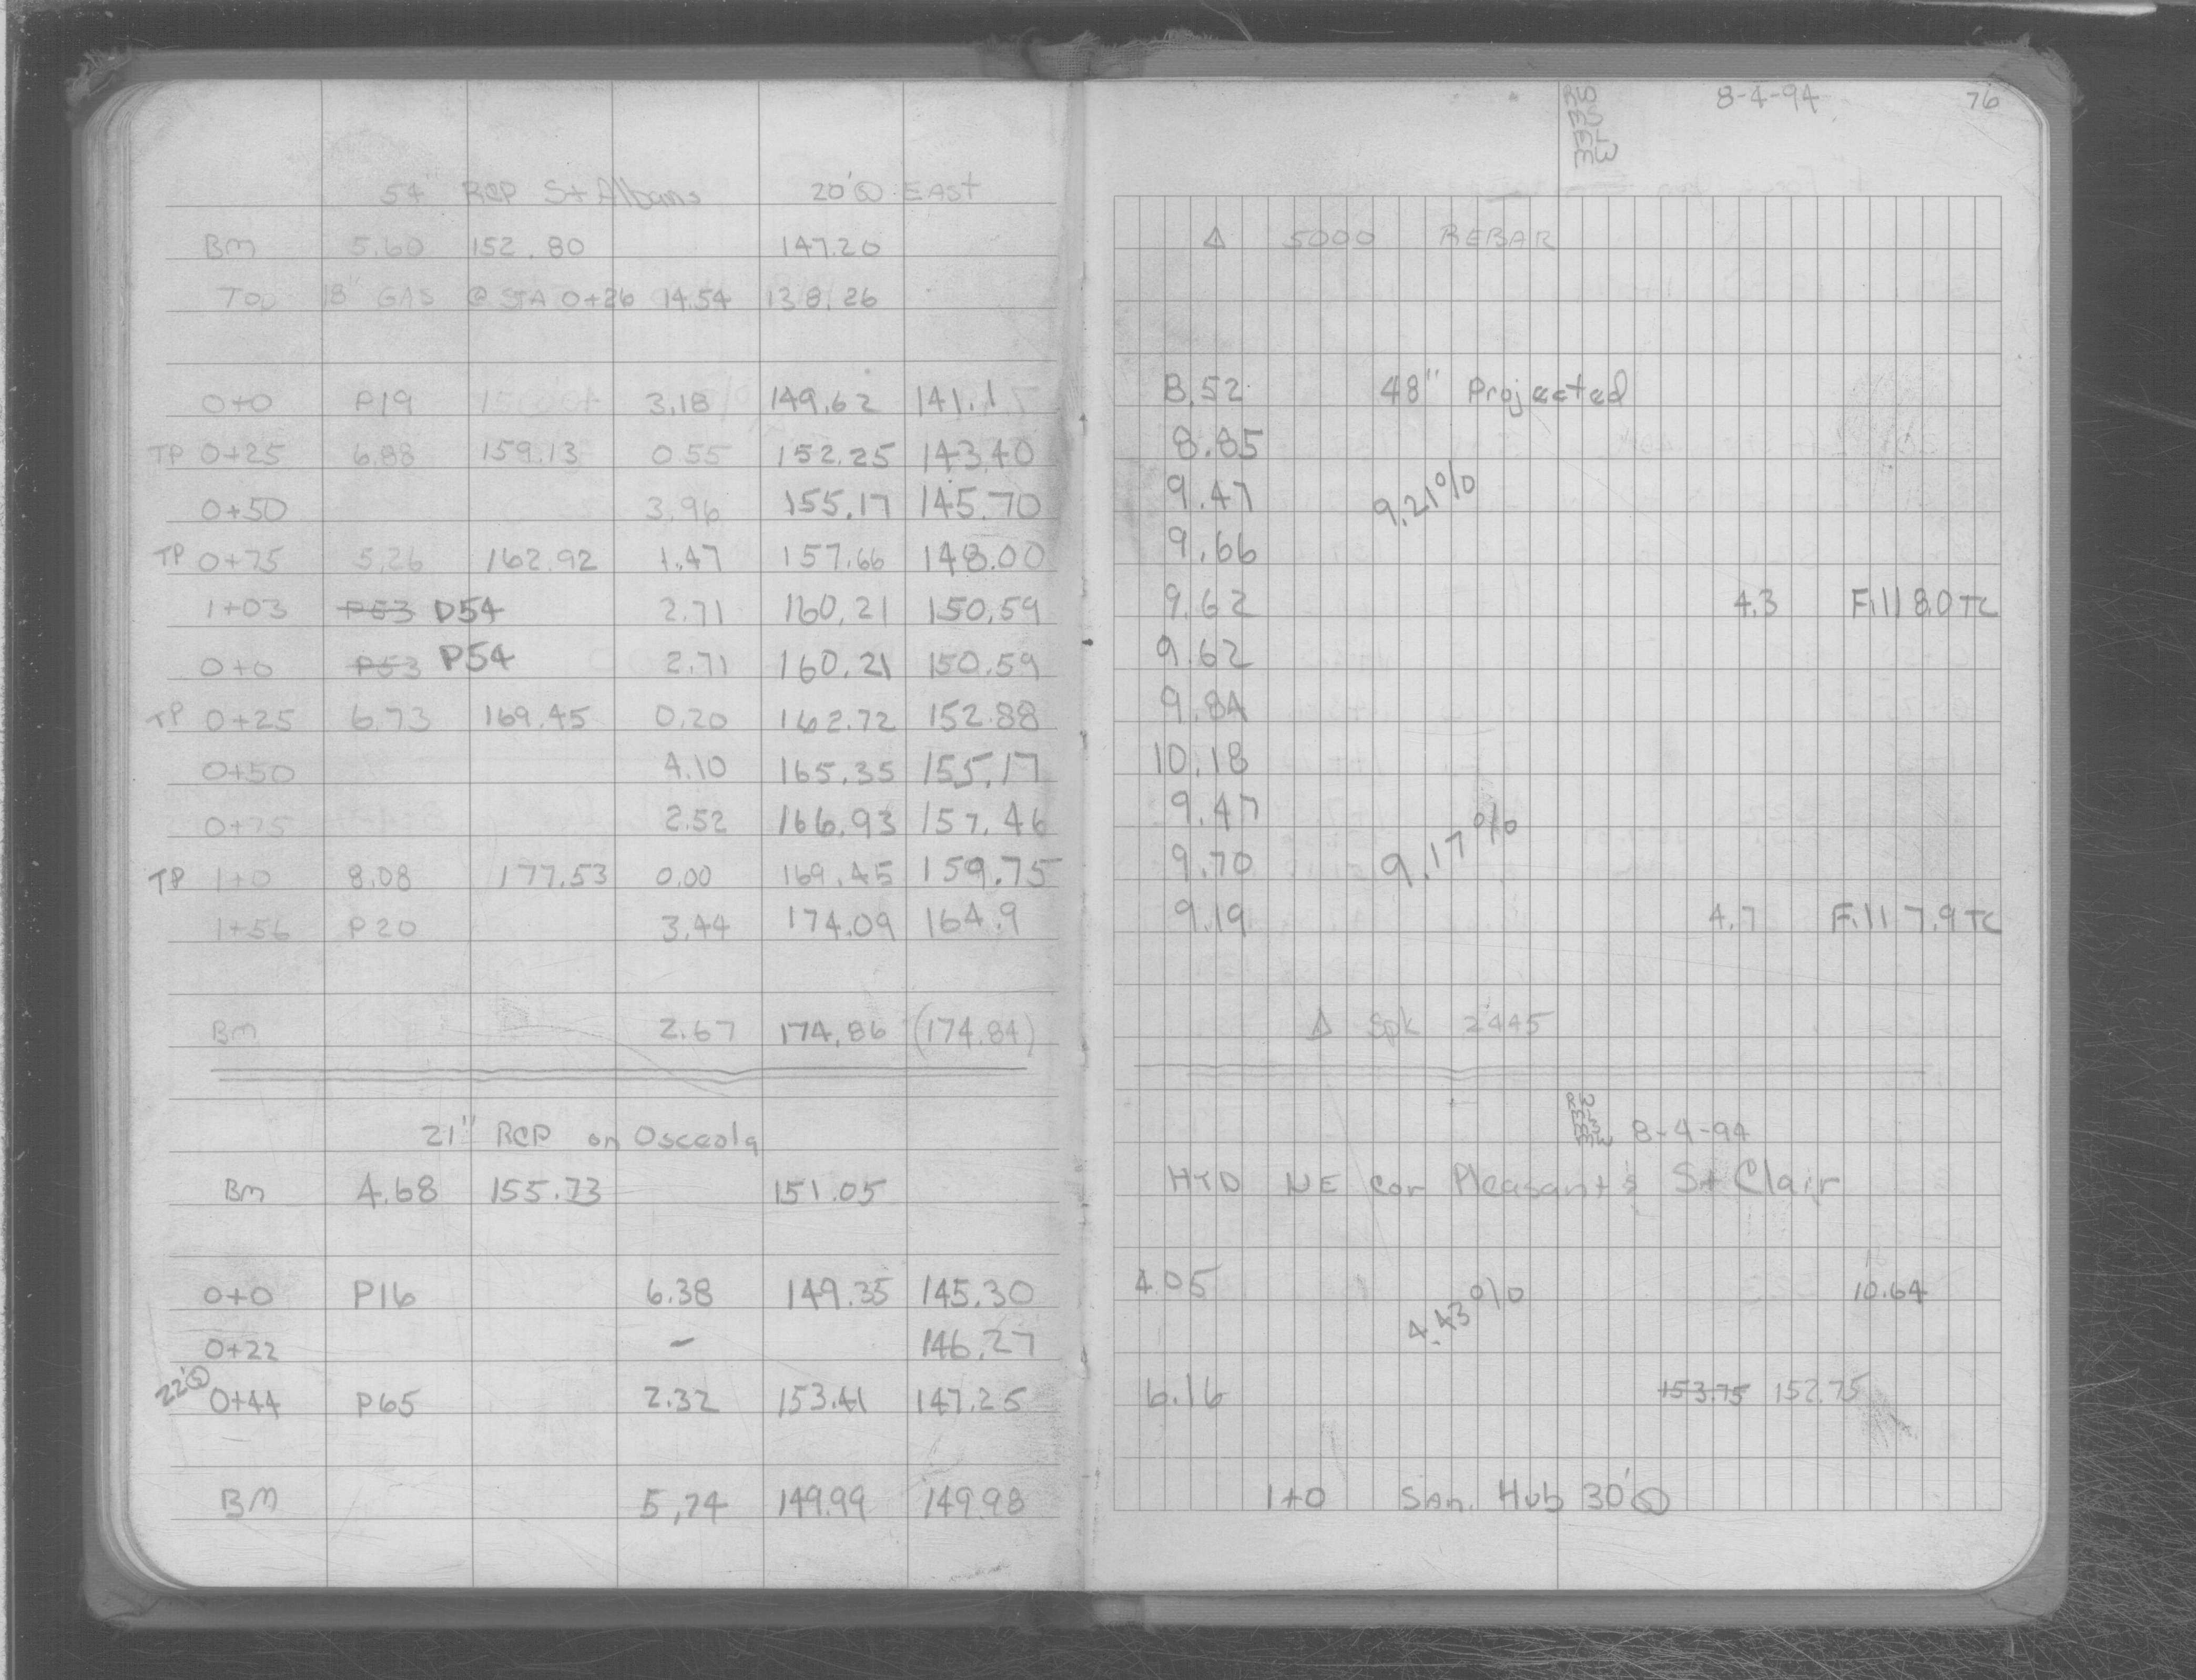 54" RCP St Albans 20' Ⓢ EAST
BM 5.60 152.80 147.20
Top 18" GAS @ STA 0+26 14.54 138.26
0+0 P19 3.18 149.62 141.1
TP 0+25 6.88 159.13 0.55 152.25 143.40
0+50 3.96 155.17 145.70
TP 0+75 5.26 162.92 1.47 157.66 148.00
1+03 P53 P54 2.71 160.21 150.59
0+0 P53 P54 2.71 160.21 150.59
TP 0+25 6.73 169.45 0.20 162.72 152.88
0+50 4.10 165.35 155.17
0+75 2.52 166.93 157.46
TP 1+0 8.08 177.53 0.00 169.45 159.75
1+56 P20 3.44 174.09 164.9
BM 2.67 174.86 (174.84)
21" RCP on Osceola
BM 4.68 155.73 151.05
0+0 P16 6.38 149.35 145.30
0+22 - 146.27
22' Ⓢ 0+44 P65 2.32 153.41 147.25
BM 5.74 149.99 149.98
8-4-94 76
Δ 5000 REBAR
8.52 48" Projected
8.85
9.47 9.21%
9.66
9.62 4.3 Fill 8.0 TC
9.62
9.84
10.18
9.47
9.70 9.17%
9.19 4.7 Fill 7.9 TC
Δ Spk 2445
8-4-94
HYD NE cor Pleasant & St Clair
4.05 4.43% 10.64
6.16 153.75 152.75
1+0 San. Hub 30' Ⓢ